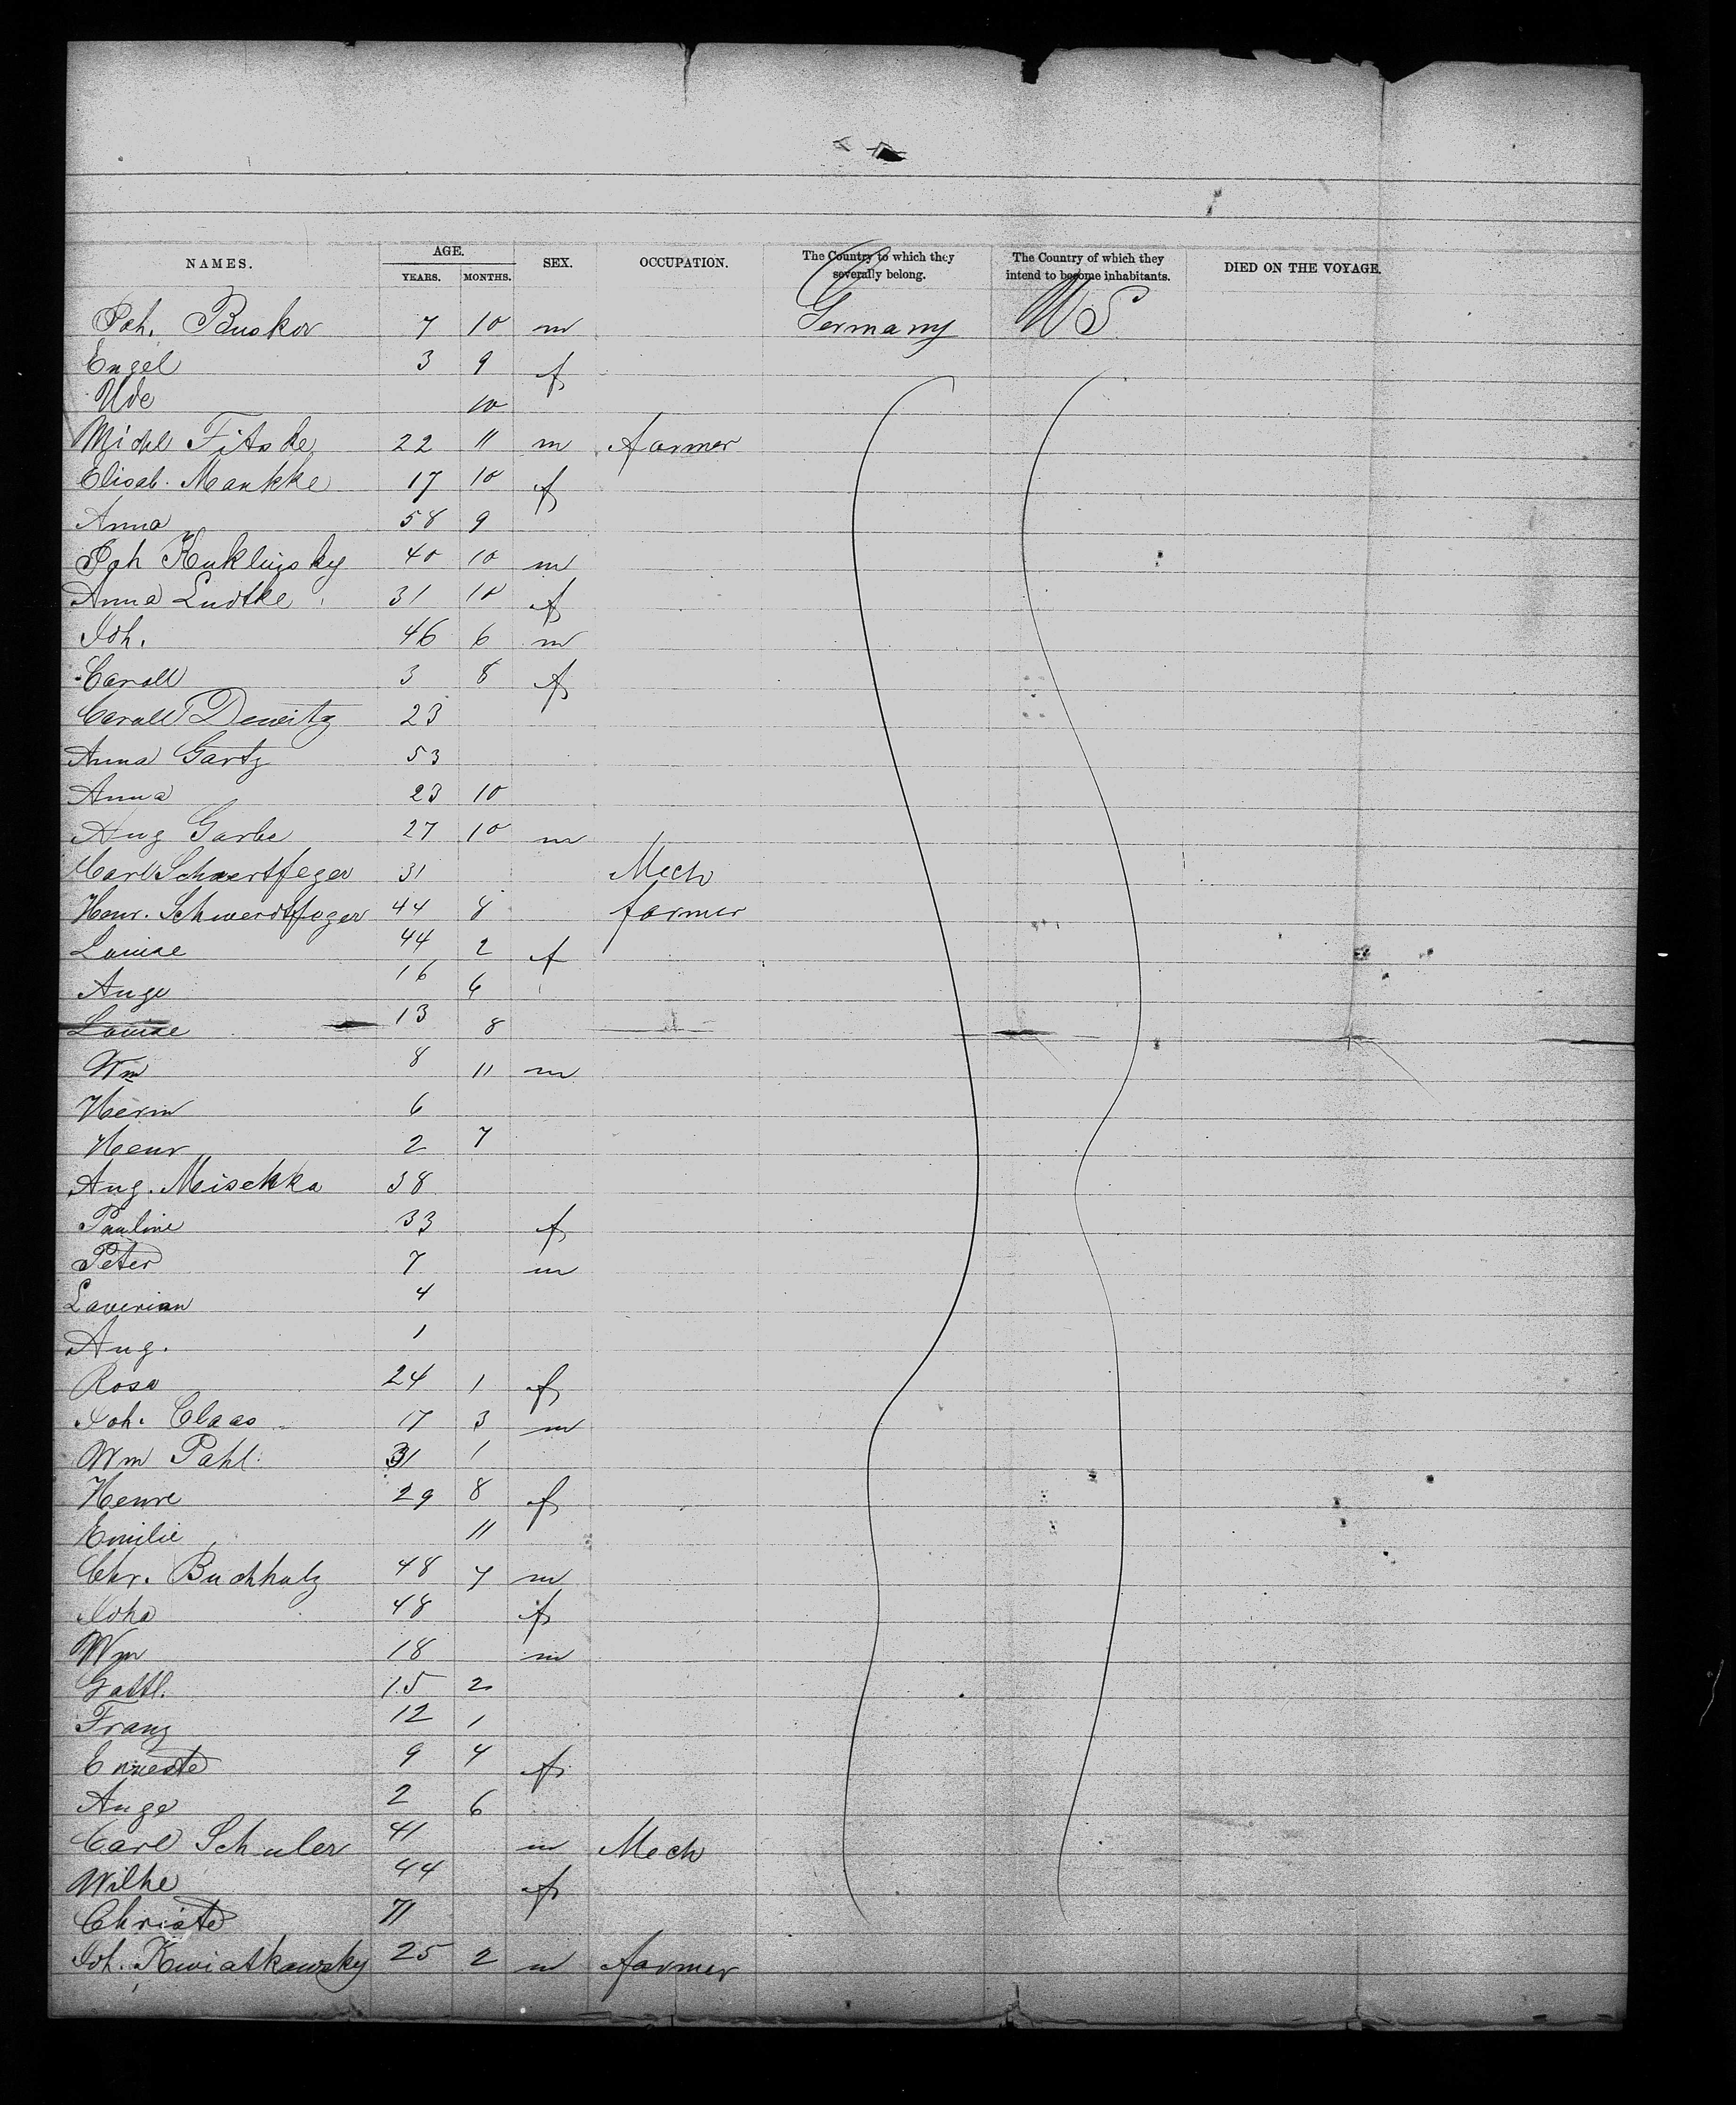 NAMES. AGE. YEARS. MONTHS. SEX. OCCUPATION. The Country to which they severally belong. The Country of which they intend to become inhabitants. DIED ON THE VOYAGE.
Joh. Busker 7 10 m Germany U S
Engel 3 9 f
Ude 10
Michl Fitske 22 11 m farmer
Elisab. Mankke 17 10 f
Anna 58 9
Joh Kuklinsky 40 10 m
Anna Ludtke 31 10 f
Joh. 46 6 m
Caroll 3 8 f
Caroll Dewitz 23
Anna Gartz 53
Anna 23 10
Aug Garbe 27 10 m
Carl Schwertfeger 31 Mech
Henr. Schwerdtfeger 44 8 farmer
Louise 44 2 f
Auge 16 6
Louise 13 8
Wm 8 11 m
Herm 6
Henr 2 7
Aug. Mischka 38
Pauline 33 f
Peter 7 m
Laverian 4
Aug. 1
Rosa 24 1 f
Joh. Claas 17 3 m
Wm Pahl 31 1
Henre 29 8 f
Emilie 11
Chr. Buchholz 48 7 m
Joha 48 f
Wm 18 m
Gottl. 15 2
Franz 12 1
Erneste 9 4 f
Auge 2 6
Carl Schuler 41 m Mech
Wilhe 44 f
Christe 71
Joh. Kwiatkowsky 25 2 m farmer